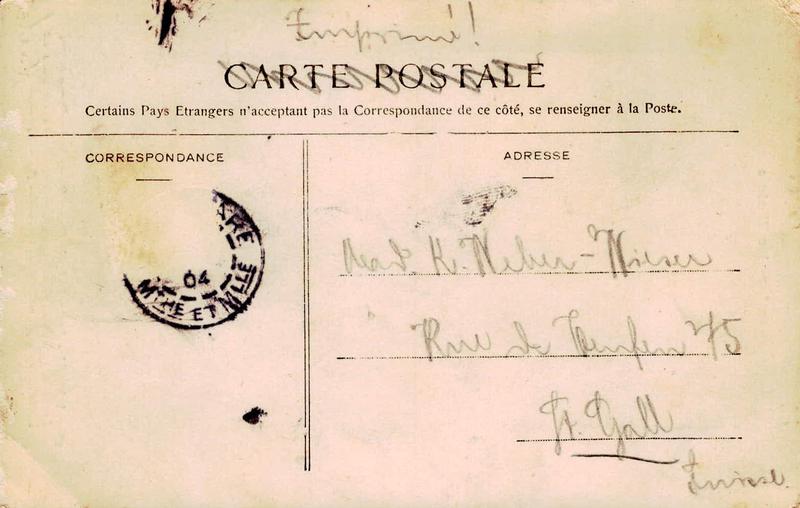 Imprimé!
CARTE POSTALE
Certains Pays Etrangers n'acceptant pas la Correspondance de ce côté, se renseigner à la Poste.
CORRESPONDANCE
ADRESSE
04
Mᵀᴴᴱ ET MLLE
Mad. K. Weber-Wieser
Rue de Teufen 75
St. Gall
Suisse.